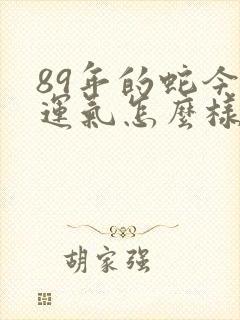 89年的蛇今
運氣怎麼樣
胡家强